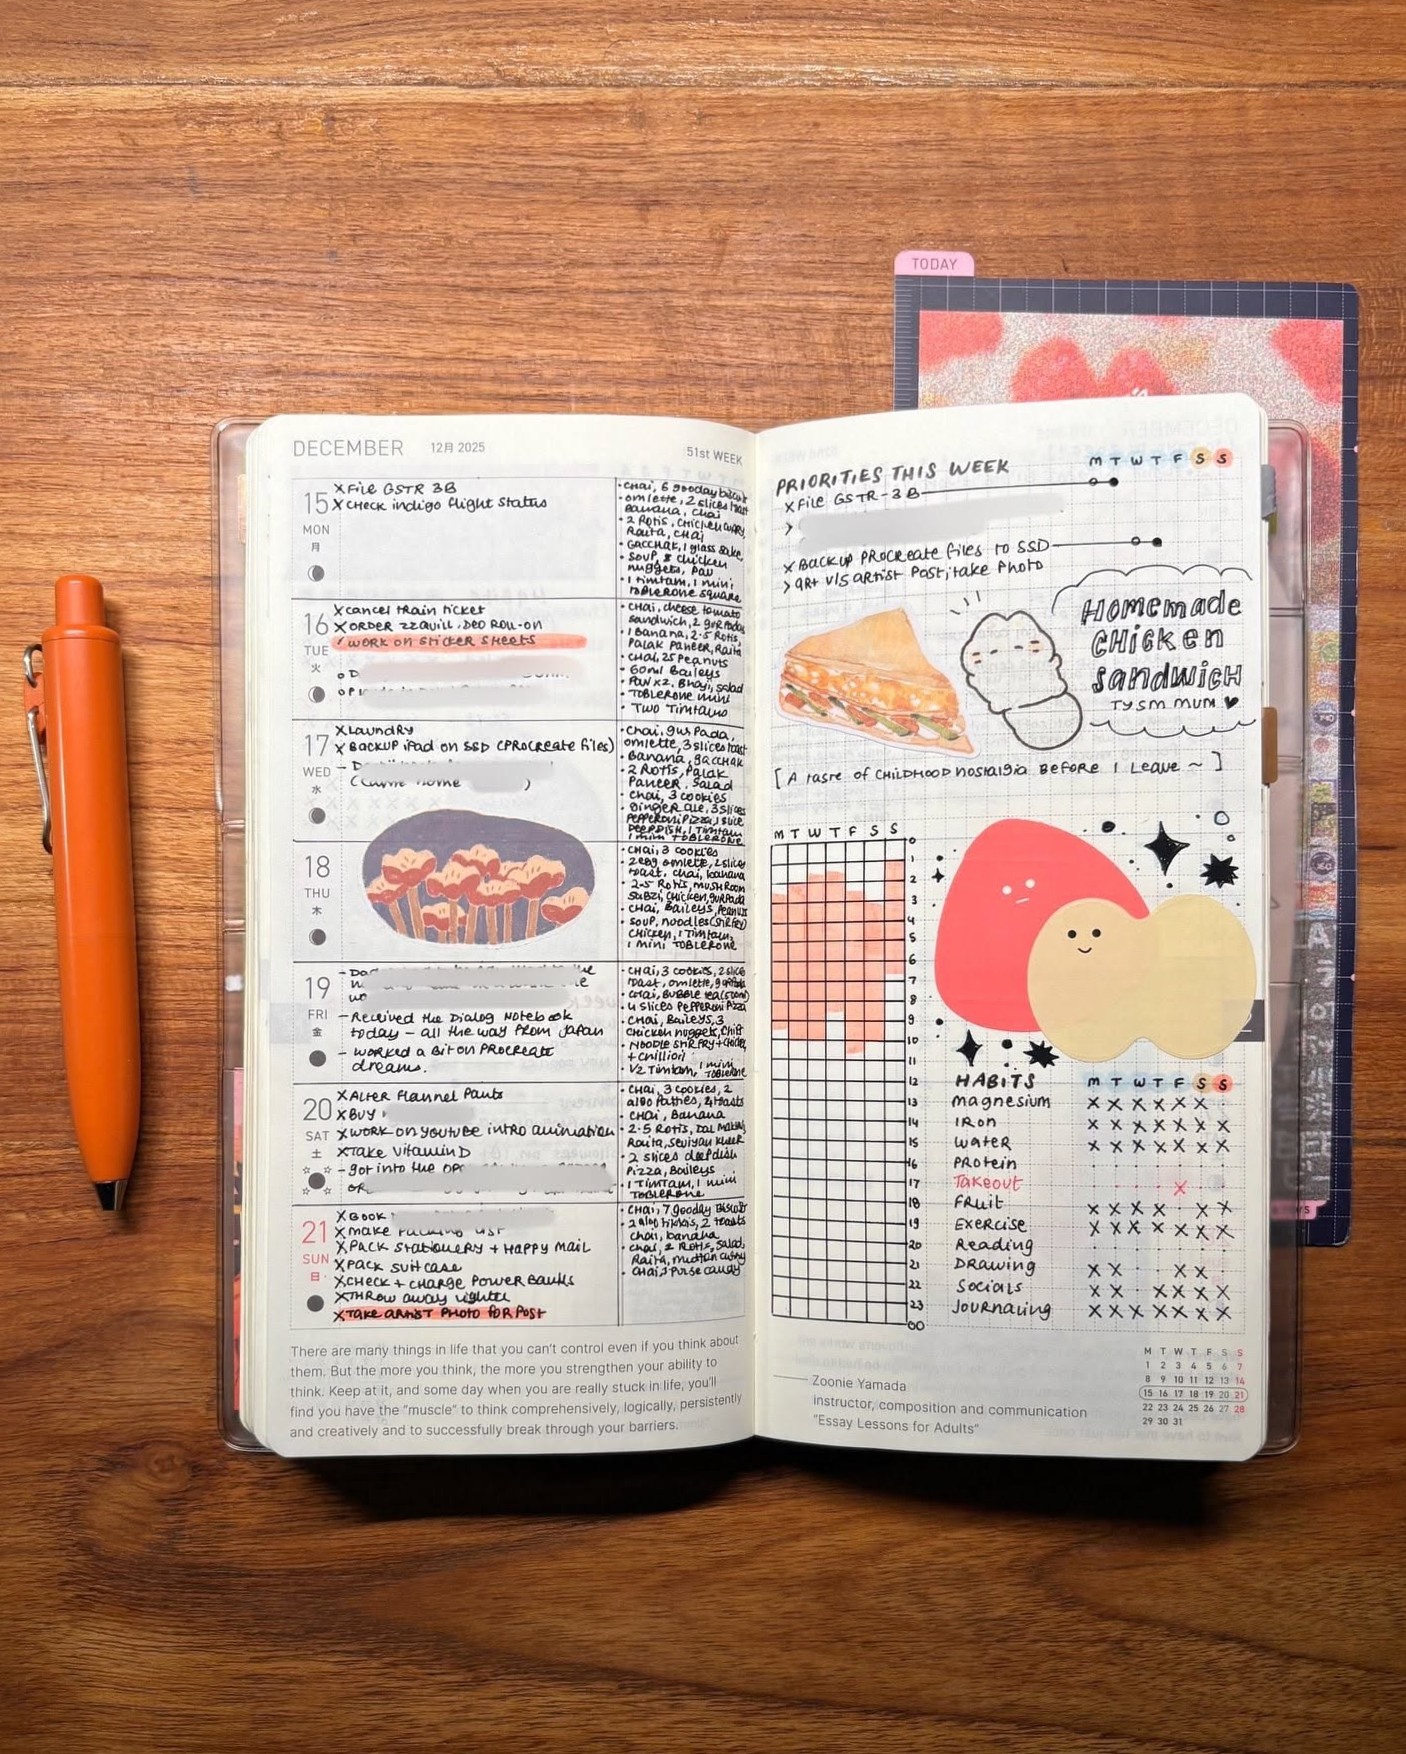 TODAY
DECEMBER 12月 2025 51st WEEK
15 MON 月
X File GSTR 3B
X Check indigo flight status
• Chai, 6 gooday biscuit
• omlette, 2 slices toast
Banana, chai
• 2 Rotis, chicken curry,
Raita, chai
• Gacchak, 1 glass sake
• Soup, 8 chicken
nuggets, Pav
• 1 Timtam, 1 mini
Toblerone square
16 TUE 火
X cancel train ticket
X order zzquill, deo roll-on
/ work on sticker sheets
• Chai, cheese tomato
sandwich, 2 gurpada
• 1 Banana, 2.5 Rotis,
Palak Paneer, Raita
• Chai, 25 Peanuts
• 60ml Baileys
• Pav x2, Bhaji, salad
• Toblerone mini
• Two Timtams
17 WED 水
X Laundry
X Backup iPad on SSD (Procreate files)
(came home )
• Chai, gur Pada,
omlette, 3 slices toast
• Banana, gacchak
• 2 Rotis, Palak
Paneer, Salad
• Chai, 3 cookies
• Ginger ale, 3 slices
Pepperoni Pizza, 1 slice
deepdish, 1 Timtam
1 mini Toblerone
18 THU 木
• Chai, 3 cookies
• 2 egg omlette, 2 slices
toast, chai, banana
• 2.5 Rotis, mushroom
Sabzi, chicken, gurpada
• Chai, Baileys, Peanuts
• Soup, noodles (stirfry)
chicken, 1 Timtam,
1 mini Toblerone
19 FRI 金
- Received the Dialog Notebook
today - all the way from Japan
- worked a bit on Procreate
dreams.
• Chai, 3 cookies, 2 slice
toast, omlette, gurpada
• Chai, Bubble tea (500ml)
• 4 slices Pepperoni Pizza
• Chai, Baileys, 3
chicken nuggets, chips
• Noodle stirfry + chicken
+ chillioil
• 1/2 Timtam, 1 mini
Toblerone
20 SAT 土
X Alter flannel Pants
X Buy
X work on youtube intro animation
X Take vitamin D
- got into the
• Chai, 3 cookies, 2
aloo Patties, 2 toasts
• Chai, Banana
• 2.5 Rotis, Dal Makhni,
Raita, Seviyan kheer
• 2 slices deepdish
Pizza, Baileys
• 1 Timtam, 1 mini
Toblerone
21 SUN 日
X Book
X make Packing list
X Pack stationery + Happy Mail
X Pack suitcase
X Check + charge Power Banks
X Throw away
X Take artist Photo for Post
• Chai, 7 gooday biscuit
• 2 aloo tikkis, 2 toasts
chai, banana
• chai, 2 Rotis, salad,
Raita, mutton curry
• Chai, Pulse candy
There are many things in life that you can't control even if you think about
them. But the more you think, the more you strengthen your ability to
think. Keep at it, and some day when you are really stuck in life, you'll
find you have the "muscle" to think comprehensively, logically, persistently
and creatively and to successfully break through your barriers.
PRIORITIES THIS WEEK M T W T F S S
X File GSTR-3B
>
X Backup Procreate files to SSD
> Art v/s artist Post, take Photo
Homemade
Chicken
Sandwich
TYSM MUM
[ A taste of CHILDHOOD nostalgia before I leave ~ ]
M T W T F S S
0
1
2
3
4
5
6
7
8
9
10
11
12
13
14
15
16
17
18
19
20
21
22
23
00
HABITS M T W T F S S
Magnesium X X X X X X
Iron X X X X X X X
Water X X X X X X X
Protein
Takeout X
Fruit X X X X X X
Exercise X X X X X X X
Reading
Drawing X X X X
Socials X X X X X X
Journaling X X X X X X X
Zoonie Yamada
instructor, composition and communication
"Essay Lessons for Adults"
M T W T F S S
1 2 3 4 5 6 7
8 9 10 11 12 13 14
15 16 17 18 19 20 21
22 23 24 25 26 27 28
29 30 31